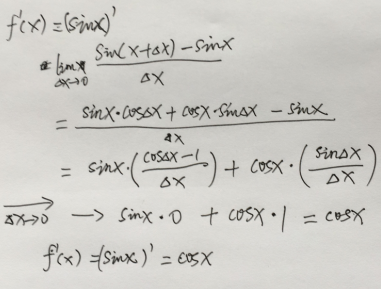 f'(x) = (sinx)'
= lim Δx→0 (sin(x+Δx) - sinx) / Δx
= (sinx·cosΔx + cosx·sinΔx - sinx) / Δx
= sinx·((cosΔx-1)/Δx) + cosx·(sinΔx/Δx)
Δx→0 → sinx·0 + cosx·1 = cosx
f'(x) = (sinx)' = cosx